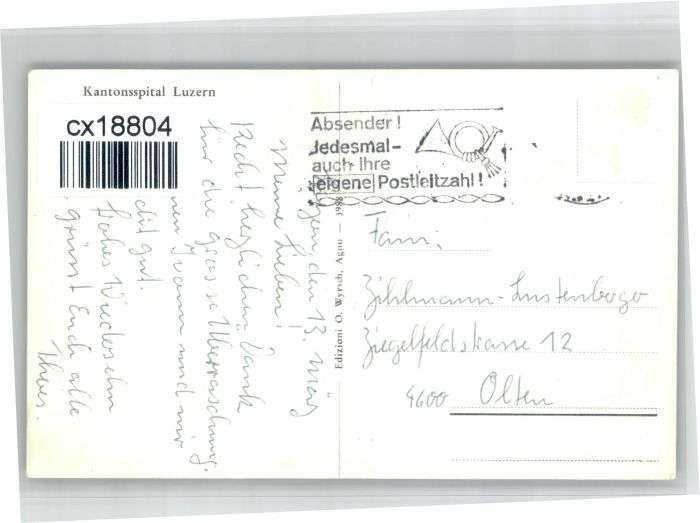 Kantonsspital Luzern
cx18804
Absender!
Jedesmal-
auch Ihre
eigene Postleitzahl!
den 13. März
Meine Lieben!
Recht herzlichen Dank
für die grosse Überraschung.
und mir
geht gut.
Frohes Wiedersehn
grüsst Euch alle
Edizioni O. Wyrsch, Agno — 3988
Fam.
Zihlmann-Lustenberger
Ziegelfeldstrasse 12
4600 Olten